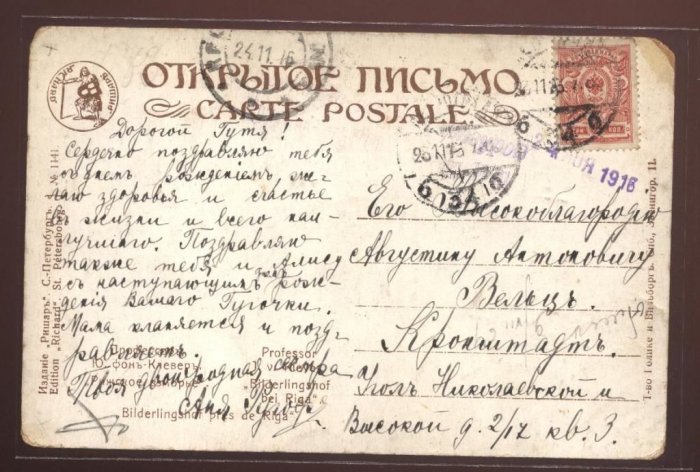 ОТКРЫТОЕ ПИСЬМО
CARTE POSTALE.
24.11.16
26.11.15
1916
Дорогой Гутя!
Сердечно поздравляю тебя
съ днемъ рожденiемъ, же-
лаю здоровья и счастье
въ жизни и всего наи-
лучшаго. Поздравляю
также тебя и Алису
съ наступающимъ рож-
денiя Вашего Гугочки.
Мама кланяется и позд-
равляетъ.
Твоя двоюродная сестра
Аня
Его Высокоблагородiю
Августину Антоновичу
Вельцъ.
Кронштадтъ.
Уголъ Николаевской и
Высокой д. 2/17 кв. 3.
Изданiе "Ришаръ". С.-Петербургъ. № 1141.
Edition "Richard". St. Petersbourg.
Профессоръ
Ю. фонъ-Клеверъ
Professor
"Bilderlingshof
bei Riga"
Bilderlingshof près de Riga
Т-во Голике и Вильборгъ. Спб., Звенигор. 11.